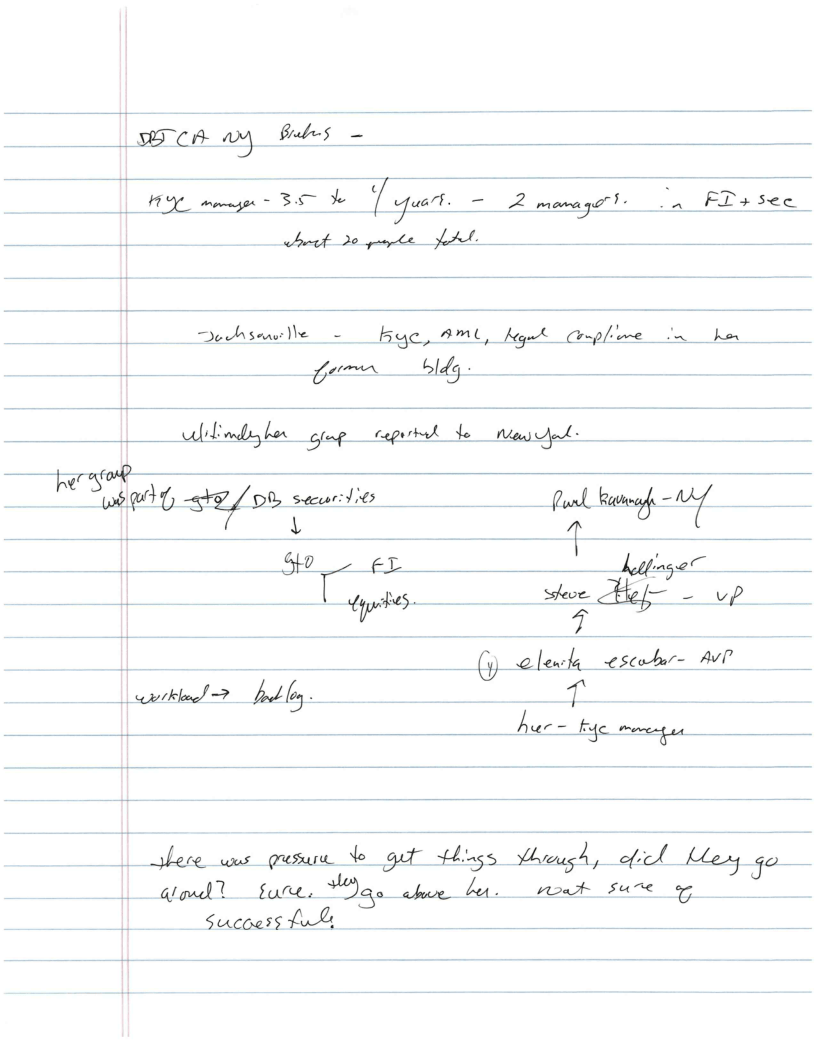 DBTCA NY
KYC manager - 3.5 to 4 years. - 2 managers. in FI + sec
about 20 people total.
Jacksonville - KYC, AML, legal compliance in her
former bldg.
ultimately her group reported to New York.
her group
was part of gto / DB securities
↓
gto FI
equities.
Paul Kavanagh - NY
↑
hollinger
steve - VP
↑
elenita escobar - AVP
↑
her - KYC manager
workload → backlog.
there was pressure to get things through, did they go
around? sure. they go above her. not sure if
successful.